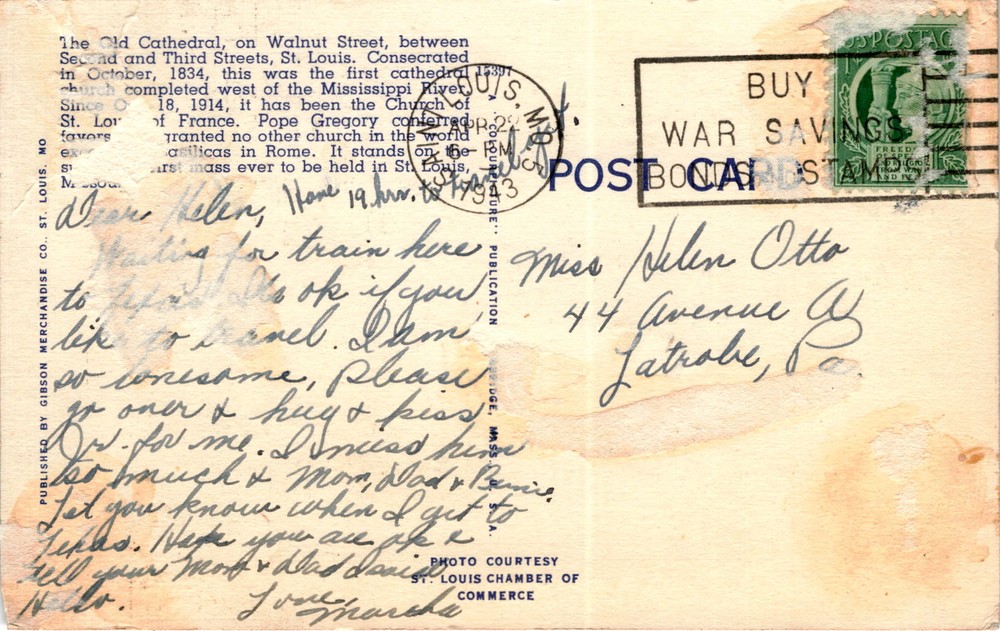 The Old Cathedral, on Walnut Street, between
Second and Third Streets, St. Louis. Consecrated
in October, 1834, this was the first cathedral
church completed west of the Mississippi River.
Since 18, 1914, it has been the Church of
St. of France. Pope Gregory conferred
favors granted no other church in the world
in Rome. It stands on the
mass ever to be held in St. Louis,
15391
ST. LOUIS, MO.
APR 28
6 - PM
1943
BUY
WAR SAVINGS
BONDS STAMPS
POST CARD
PUBLISHED BY GIBSON MERCHANDISE CO., ST. LOUIS, MO
PUBLICATION
MASS., U. S. A.
Home 19 hrs. to travel yet.
Dear Helen,
Waiting for train here
to Texas. It's ok if you
like to travel. I am
so lonesome, please
go over & hug & kiss
Jr. for me. I miss him
so much & Mom, Dad &
Let you know when I get to
Texas. Hope you are ok &
tell your Mom & Dad I said
Hello.
Love,
Marcha
Miss Helen Otto
44 Avenue A
Latrobe, Pa.
PHOTO COURTESY
ST. LOUIS CHAMBER OF
COMMERCE